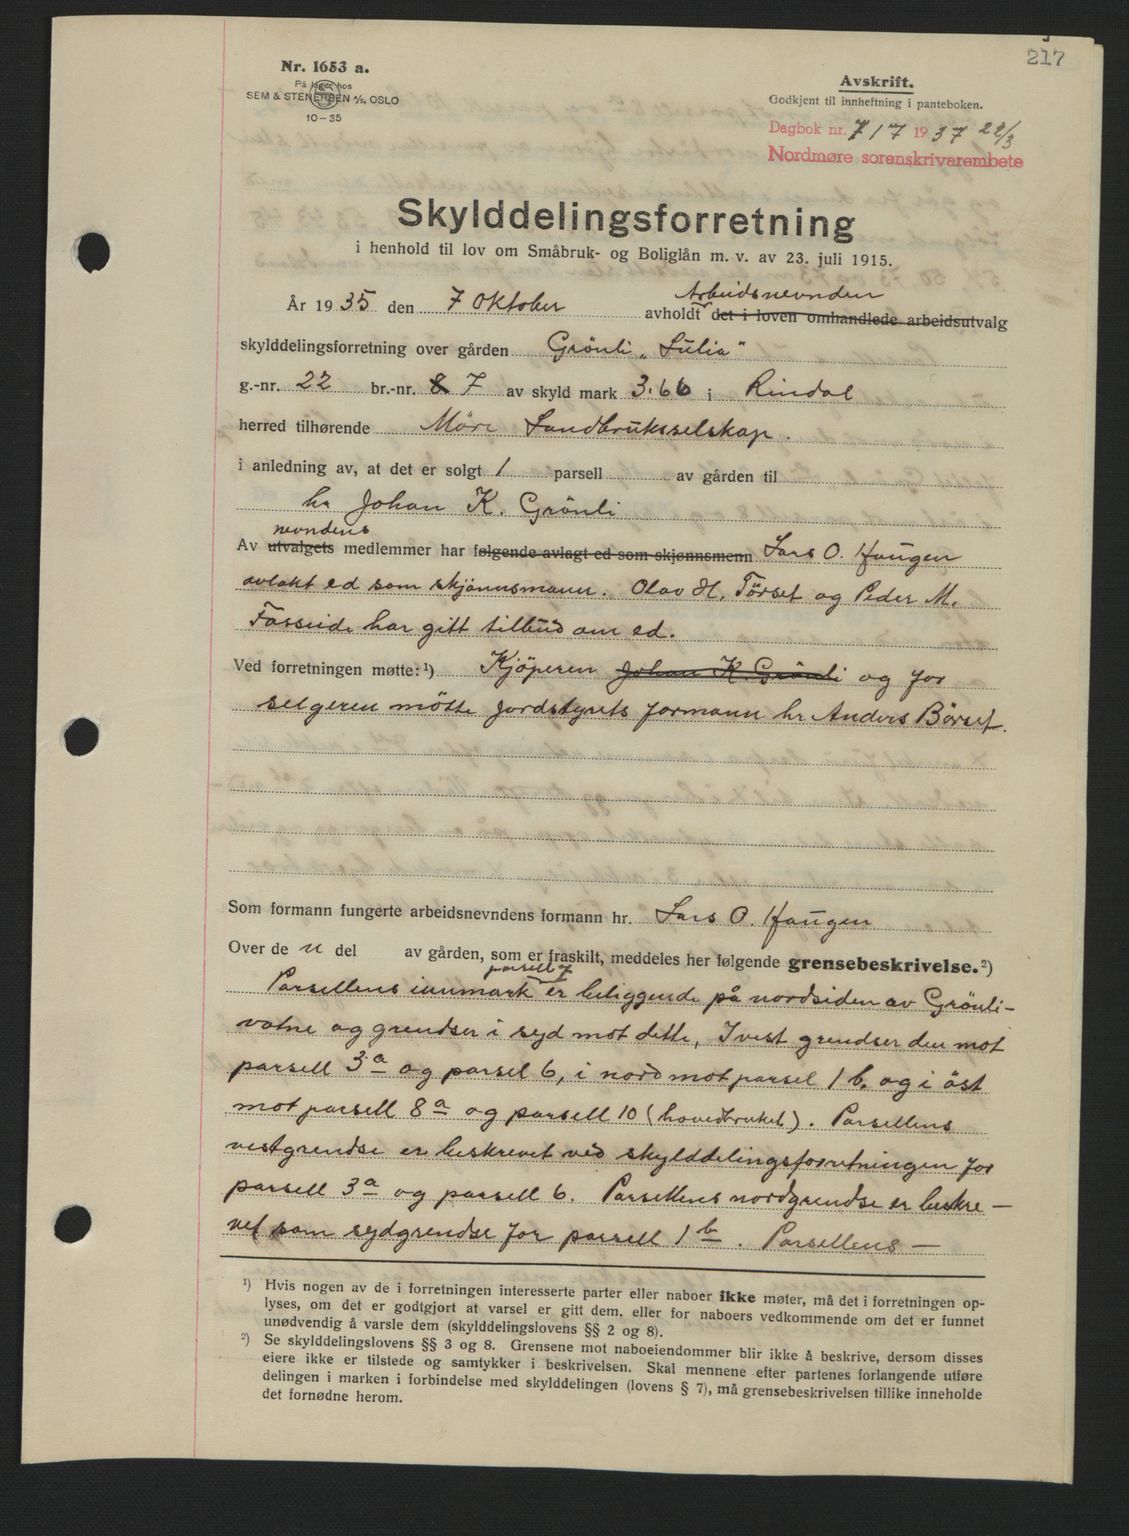 217
Nr. 1653 a.
På lager hos
SEM & STENERSEN A/S, OSLO
10-35
Avskrift.
Godkjent til innheftning i panteboken.
Dagbok nr. 717 1937 22/3
Nordmøre sorenskrivarembete
Skylddelingsforretning
i henhold til lov om Småbruk- og Boliglån m. v. av 23. juli 1915.
Arbeidsnevnden
År 1935 den 7 Oktober avholdt det i loven omhandlede arbeidsutvalg
skylddelingsforretning over gården Grönli „Sülia"
g.-nr. 22 br.-nr. 8 7 av skyld mark 3.66 i Rindal
herred tilhørende Möre Landbruksselskap.
i anledning av, at det er solgt 1 parsell av gården til
hr Johan K. Grönli
nevndens
Av utvalgets medlemmer har følgende avlagt ed som skjønnsmenn Lars O. Haugen
avlakt ed som skjønnsmann. Olav H. Törset og Peder M.
Fosseide har gitt tilbud om ed.
Ved forretningen møtte: ¹) Kjöperen Johan K. Grönli og for
selgeren mötte jordstyrets formann hr Anders Börset.
Som formann fungerte arbeidsnevndens formann hr. Lars O. Haugen
Over de n del av gården, som er fraskilt, meddeles her følgende grensebeskrivelse. ²)
parsell 7
Parsellens innmark er beliggende på nordsiden av Grönli-
vatne og grendser i syd mot dette, I vest grendser den mot
parsell 3a og parsel 6, i nord mot parsel 1 b. og i öst
mot parsell 8a og parsell 10 (hovedbruket). Parsellens
vestgrendse er beskrevet ved skylddelingsforretningen for
parsell 3a og parsell 6. Parsellens nordgrendse er beskre-
vet som sydgrendse for parsell 1 b. Parsellens —
¹) Hvis nogen av de i forretningen interesserte parter eller naboer ikke møter, må det i forretningen op-
lyses, om det er godtgjort at varsel er gitt dem, eller for naboers vedkommende om det er funnet
unødvendig å varsle dem (skylddelingslovens §§ 2 og 8).
²) Se skylddelingslovens §§ 3 og 8. Grensene mot naboeiendommer blir ikke å beskrive, dersom disses
eiere ikke er tilstede og samtykker i beskrivelsen. Skal mennene efter partenes forlangende utføre
delingen i marken i forbindelse med skylddelingen (lovens § 7), må grensebeskrivelsen tillike inneholde
det fornødne herom.